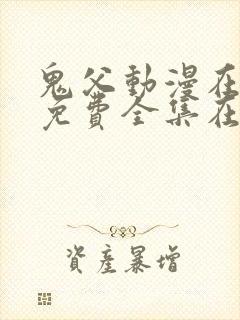 鬼父動漫在
免費全集在
資產暴增